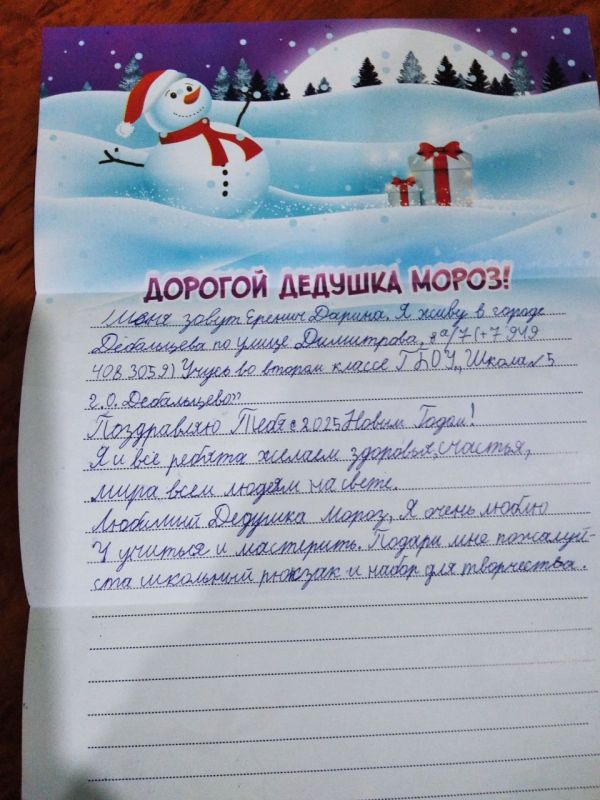 ДОРОГОЙ ДЕДУШКА МОРОЗ!
Меня зовут Еренич Дарина. Я живу в городе
Дебальцева по улице Димитрова, 8а/7 (+7 949
408 3059) Учусь во втором классе ГБОУ „Школа №5
г.о. Дебальцево"
Поздравляю Тебя с 2025 Новим Годом!
Я и все ребята желаем здоровья, счастья,
мира всем людям на свете.
Любимий Дедушка мороз, Я очень люблю
учиться и мастерить. Подари мне пожалуй-
ста школьный рюкзак и набор для творчества.